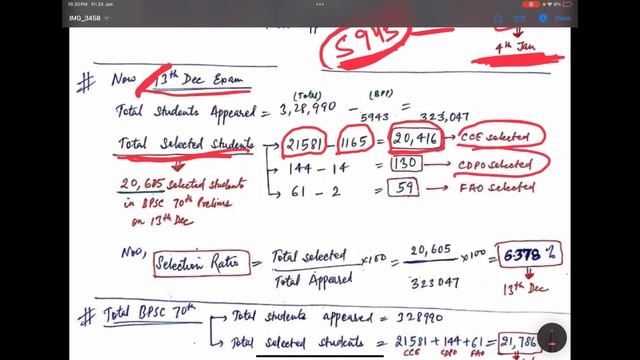 10:20 PM Fri 24 Jan
IMG_3458
5943
4th Jan
# Now 13th Dec Exam
(Total) (BPP)
Total Students Appeared = 3,28,990 - 5943 = 323,047
Total Selected Students → 21581 - 1165 = 20,416 → CCE selected
→ 144 - 14 = 130 → CDPO selected
→ 61 - 2 = 59 → FAO selected
20,605 selected students
in BPSC 70th Prelims
on 13th Dec
Now, Selection Ratio = Total selected / Total Appeared ×100 = 20,605 / 323047 ×100 = 6.378 %
13th Dec
# Total BPSC 70th → Total students appeared = 328990
→ Total selected students = 21581 + 144 + 61 = 21,786
CCE CDPO FAO